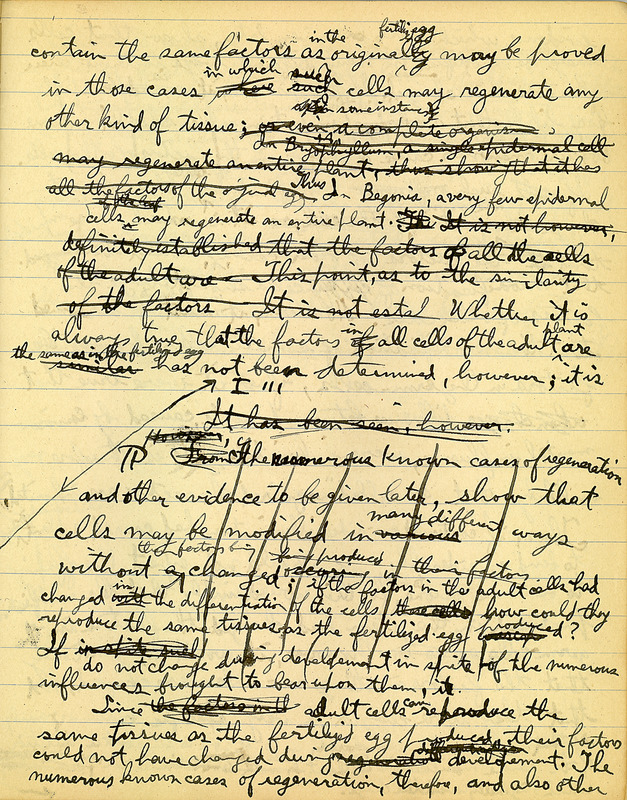 in the fertilized egg
contain the same factors as originally may be proved
in which such
in those cases where such cells may regenerate any
and in some instances
other kind of tissue; or even a complete organism.
In Bryophyllum, a single epidermal cell
may regenerate an entire plant, thus showing that it has
all the factors of the original egg. Thus In Begonia, a very few epidermal
of the leaf
cells may regenerate an entire plant. The It is not however,
definitely established that the factors of all the cells
of the adult are This point, as to the similarity
of the factors It is not esta! Whether it is
plant
always true that the factors in of all cells of the adult are
the same as in the fertilized egg
similar has not been determined, however; it is
I "'
It has been seen, however.
However,
¶ From The numerous known cases of regeneration
and other evidence to be given later, show that
many different
cells may be modified in various ways
their factors being
without changed; produced occurring in their factors
if the factors in the adult cells had
in
changed with the differentiation of the cells these cells how could they
reproduce the same tissues as the fertilized egg produced?
If in spite such
do not change during development in spite of the numerous
influences brought to bear upon them, it
Since the factors in the adult cells can reproduce the
same tissues as the fertilized egg produced, their factors
could not have changed during development. The
numerous known cases of regeneration, therefore, and also other